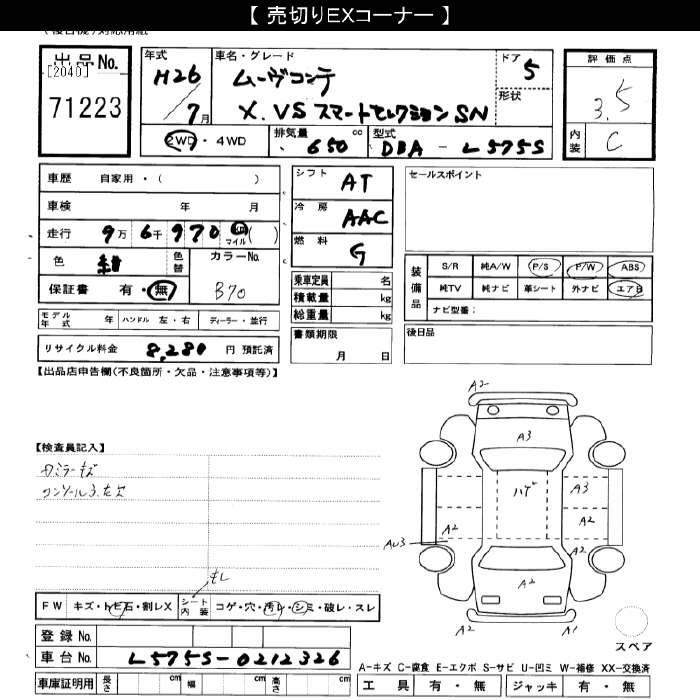 【 売切りEXコーナー 】
出品No.
[2040]
71223
年式
H26
7月
車名・グレード
ムーヴコンテ
X.VSスマートセレクションSN
ドア
5
形状
評価点
3.5
内装
C
2WD・4WD
排気量
650 cc
型式
DBA-L575S
車歴 自家用・( )
車検 年 月
走行 9万6千970 km マイル( )
色 紺
色替
カラーNo.
B70
保証書 有・無
シフト
AT
冷房
AAC
燃料
G
セールスポイント
乗車定員 名
積載量 kg
総重量 kg
装備品
S/R 純A/W P/S P/W ABS
純TV 純ナビ 革シート 外ナビ エアB
ナビ型番:
モデル年式 年 ハンドル 左・右 ディーラー・並行
リサイクル料金 8,280 円 預託済
書類期限
月 日
後日品
【出品店申告欄(不良箇所・欠品・注意事項等)】
【検査員記入】
A2
A3
ハゲ
A3
A2
A2
AU3
A2
A2
A2
A1
コゲ
FW キズ・トビ石・割レX
シート内装 コゲ・穴・汚レ・シミ・破レ・スレ
スペア
登録No.
車台No. L575S-0212326
車庫証明用 長さ cm 幅 cm 高さ cm
A-キズ C-腐食 E-エクボ S-サビ U-凹ミ W-補修 XX-交換済
工具 有・無 ジャッキ 有・無